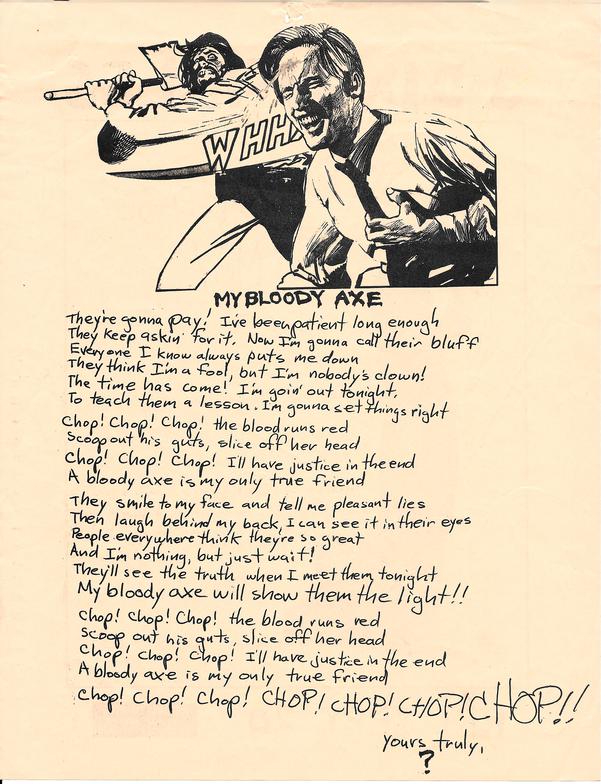 WHHH
MY BLOODY AXE
They're gonna pay! I've been patient long enough
They keep askin' for it. Now I'm gonna call their bluff
Everyone I know always puts me down
They think I'm a fool, but I'm nobody's clown!
The time has come! I'm goin' out tonight,
To teach them a lesson. I'm gonna set things right
Chop! Chop! Chop! the blood runs red
Scoop out his guts, slice off her head
Chop! Chop! Chop! I'll have justice in the end
A bloody axe is my only true friend
They smile to my face and tell me pleasant lies
Then laugh behind my back, I can see it in their eyes
People everywhere think they're so great
And I'm nothing, but just wait!
They'll see the truth when I meet them tonight
My bloody axe will show them the light!!
Chop! Chop! Chop! the blood runs red
Scoop out his guts, slice off her head
Chop! Chop! Chop! I'll have justice in the end
A bloody axe is my only true friend
Chop! Chop! Chop! CHOP! CHOP! CHOP! CHOP!!
yours truly,
?